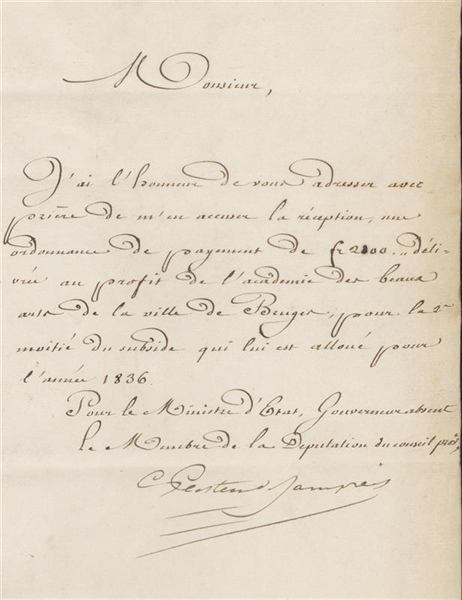 Monsieur,
J'ai l'honneur de vous adresser avec
prière de m'en accuser la réception, une
ordonnance de payement de fr 2100 ,, déli-
vrée au profit de l'académie des beaux
arts de la ville de Bruges, pour la 2e
moitié du subside qui lui est alloué pour
l'année 1836
Pour le Ministre d'Etat, Gouverneur absent
le Membre de la Députation du conseil